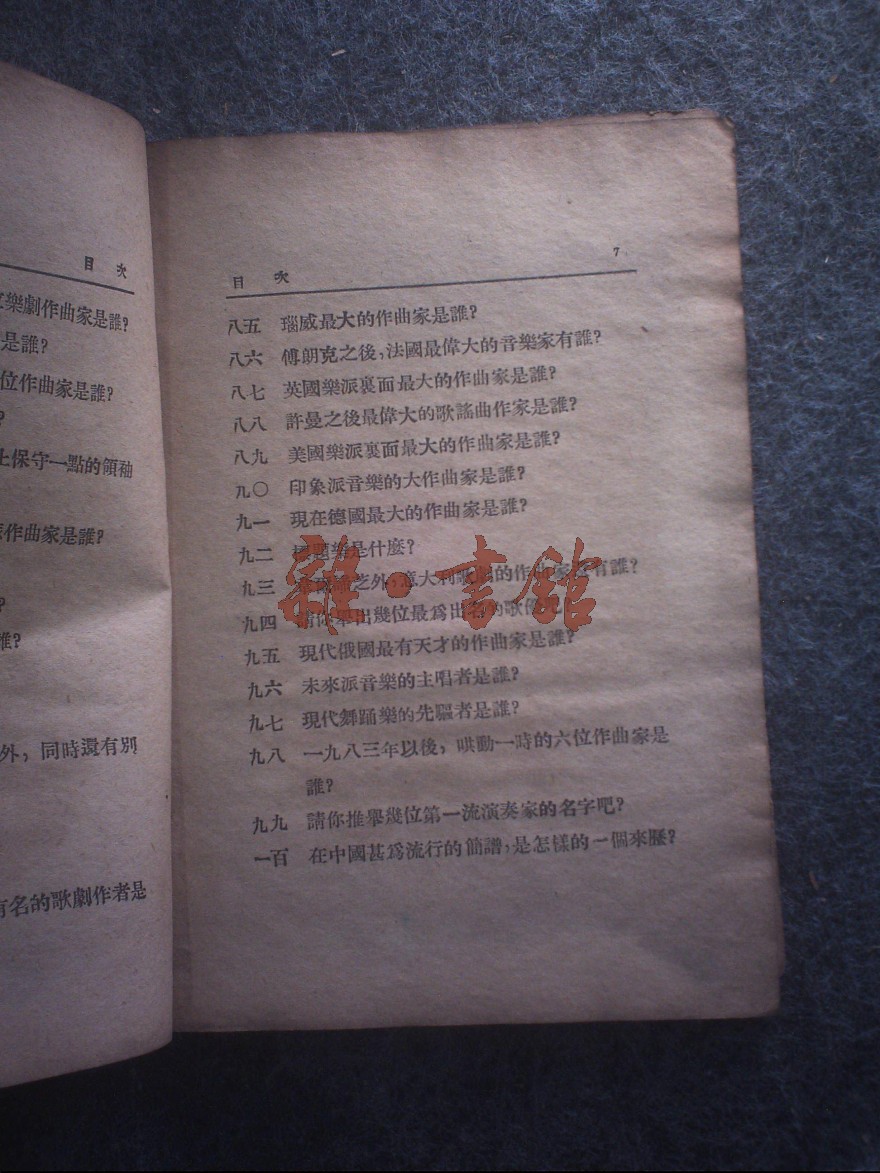 目 次
樂劇作曲家是誰?
是誰?
位作曲家是誰?
?
上保守一點的領袖
作曲家是誰?
?
誰?
外,同時還有別
有名的歌劇作者是
目 次 7
八五 瑙威最大的作曲家是誰?
八六 傅朗克之後,法國最偉大的音樂家有誰?
八七 英國樂派裏面最大的作曲家是誰?
八八 許曼之後最偉大的歌謠曲作家是誰?
八九 美國樂派裏面最大的作曲家是誰?
九〇 印象派音樂的大作曲家是誰?
九一 現在德國最大的作曲家是誰?
九二 標題樂是什麼?
九三 之外,意大利歌劇的作曲家還有誰?
九四 請你舉出幾位最爲出名的歌
九五 現代俄國最有天才的作曲家是誰?
九六 未來派音樂的主唱者是誰?
九七 現代舞踊樂的先驅者是誰?
九八 一九八三年以後,哄動一時的六位作曲家是
誰?
九九 請你推舉幾位第一流演奏家的名字吧?
一百 在中國甚爲流行的簡譜,是怎樣的一個來歷?
雜·書館